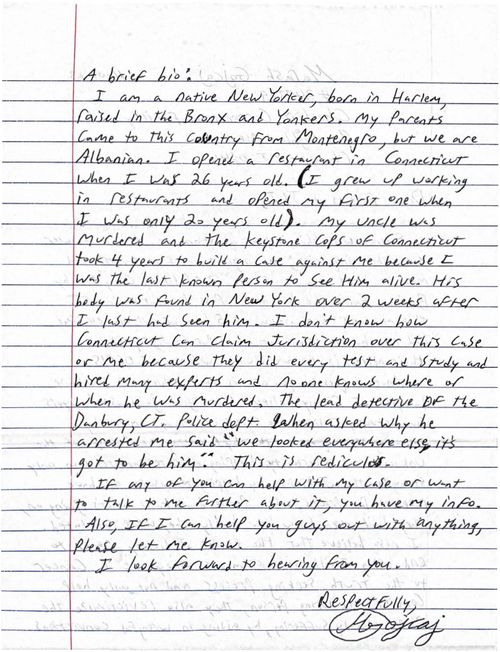 A brief bio:
I am a native New Yorker, born in Harlem,
raised in the Bronx and Yonkers. My Parents
Came to this Country from Montenegro, but we are
Albanian. I opened a restaurant in Connecticut
when I was 26 years old. (I grew up working
in restaurants and opened my first one when
I was only 20 years old). My uncle was
Murdered and the Keystone Cops of Connecticut
took 4 years to build a case against me because I
was the last known Person to See Him alive. His
body was found in New York over 2 weeks after
I last had seen him. I don't know how
Connecticut Can Claim Jurisdiction over this Case
or me because they did every test and study and
hired Many experts and no one knows where or
when he was murdered. The lead detective OF the
Danbury, CT. Police dept. When asked why he
arrested me said "we looked everywhere else, it's
got to be him". This is rediculos.
If any of you can help with my case or want
to talk to me further about it, you have my info.
Also, IF I can help you guys out with anything,
Please let me know.
I look forward to hearing from you.
Respectfully,